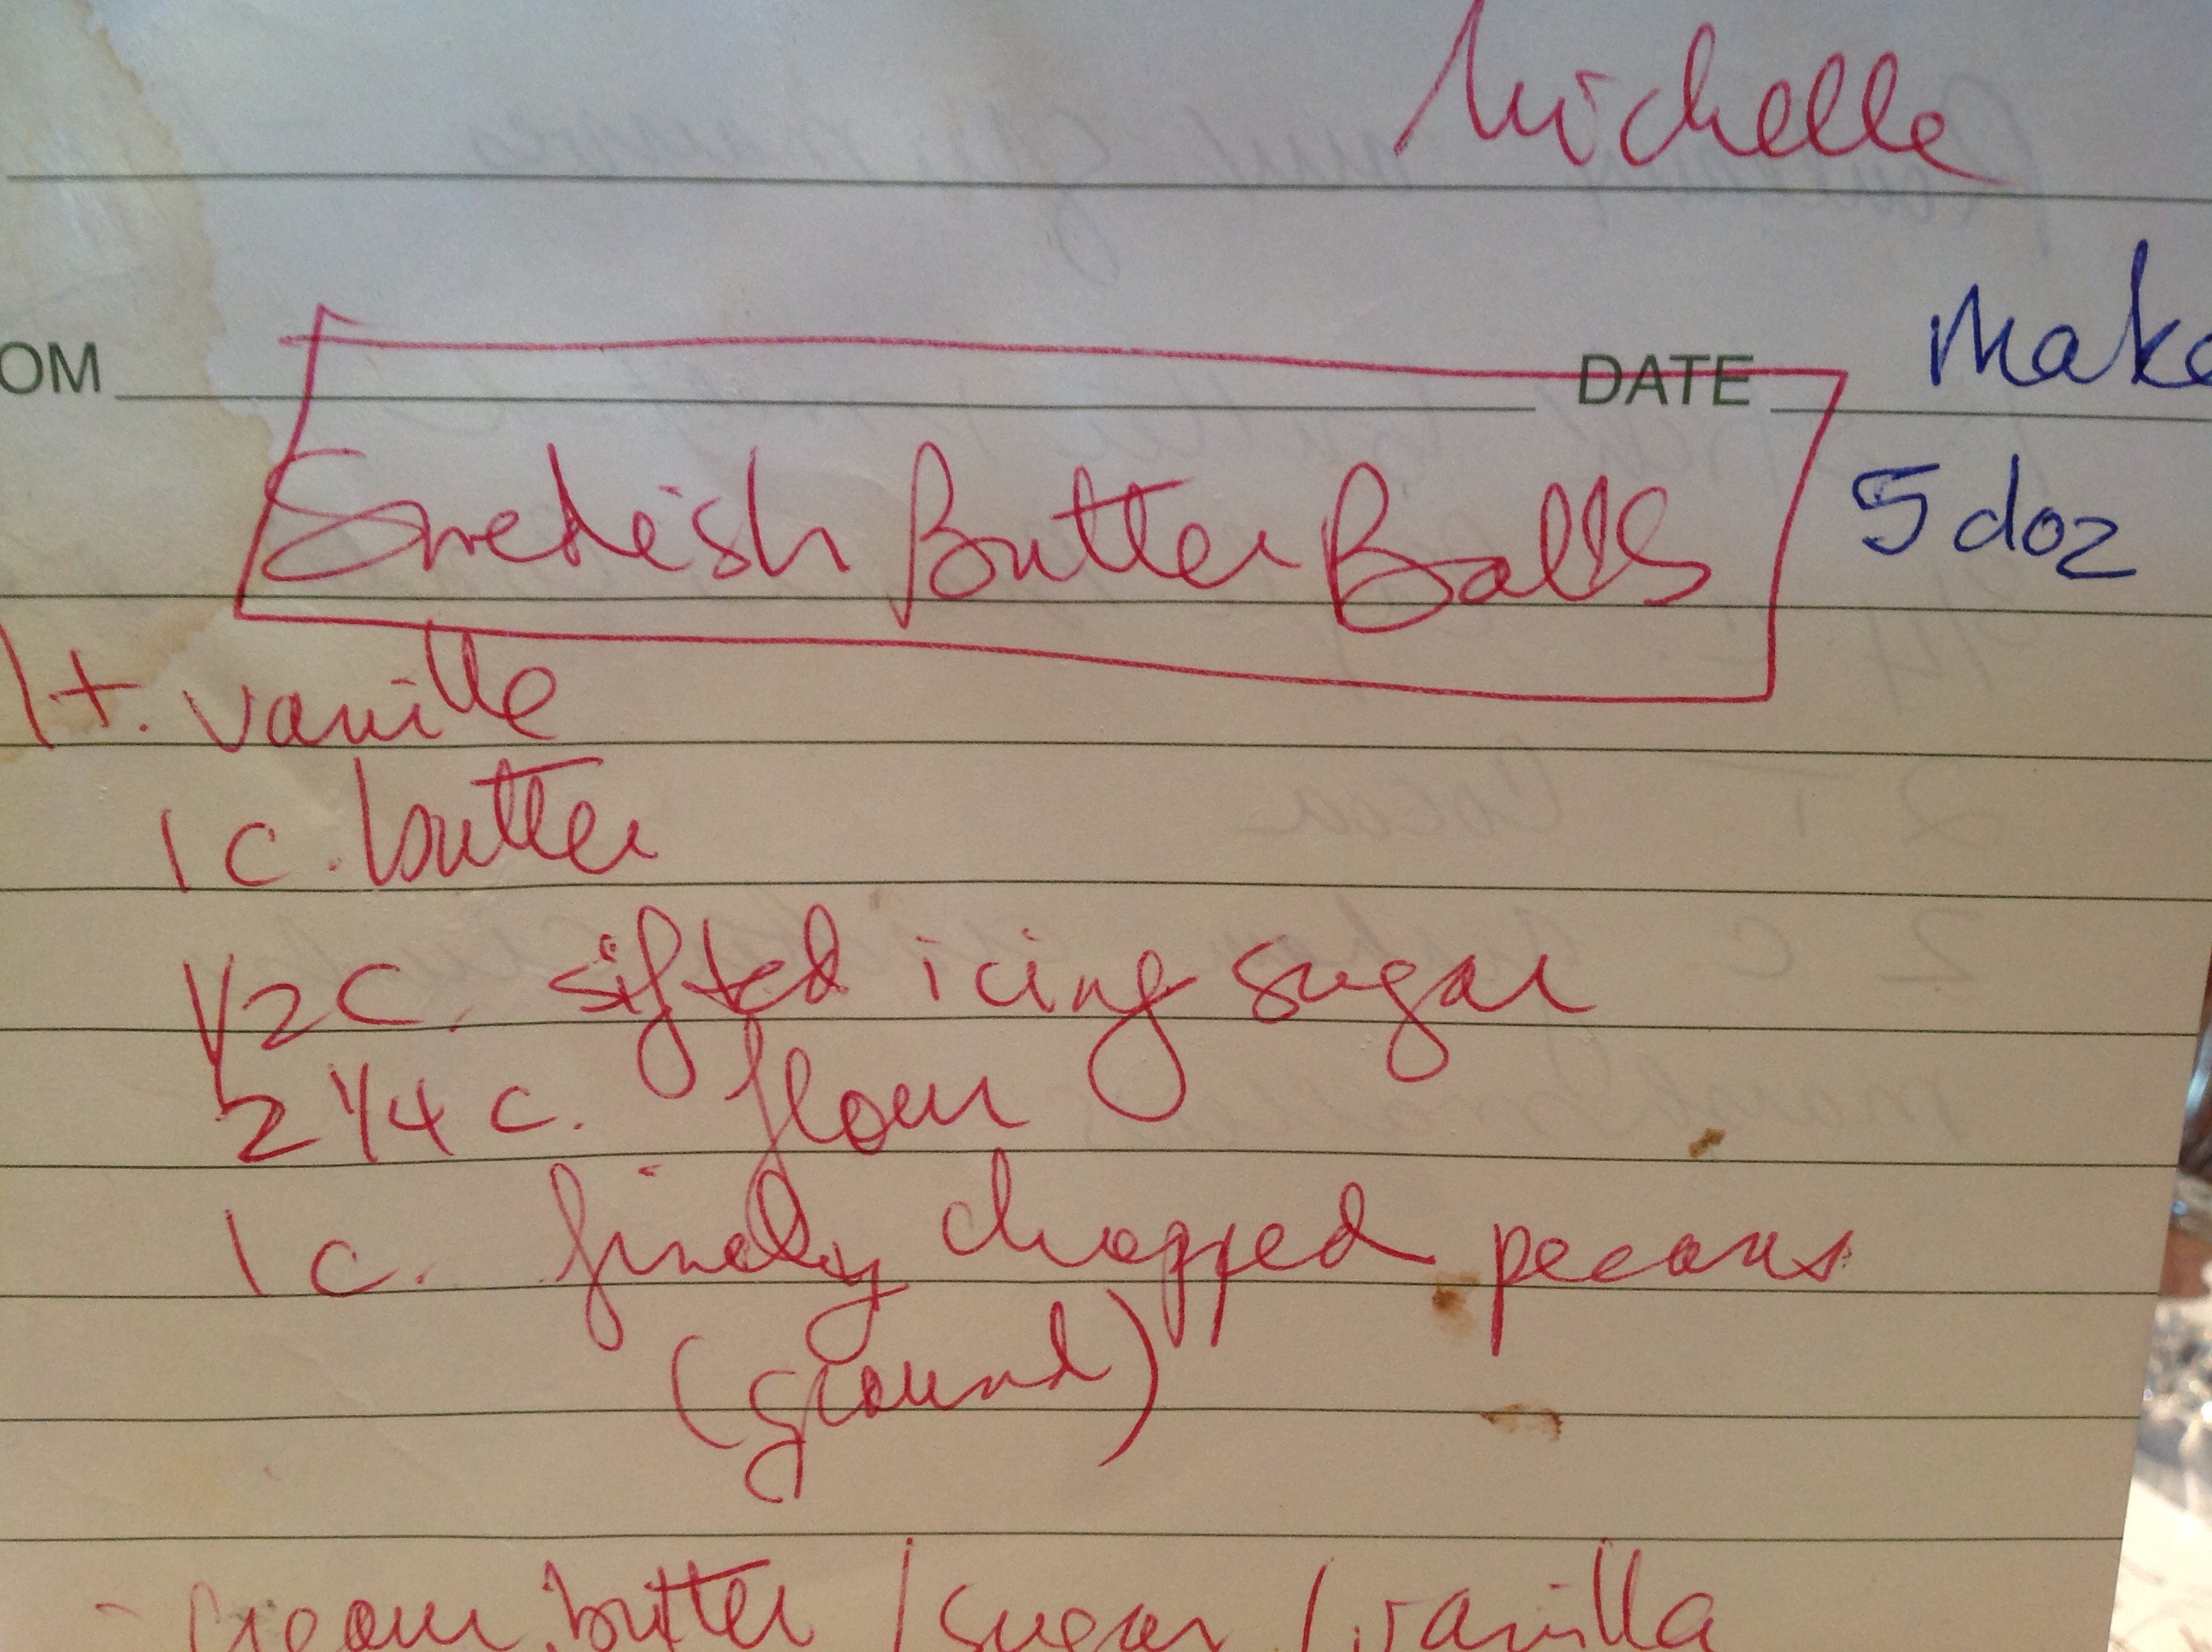 Michelle
OM DATE Make
Swedish Butter Balls 5 doz
1 t. vanille
1 c. butter
1/2 c. sifted icing sugar
2 1/4 c. flour
1 c. finely chopped pecans
(ground)
- Cream butter / sugar / vanilla